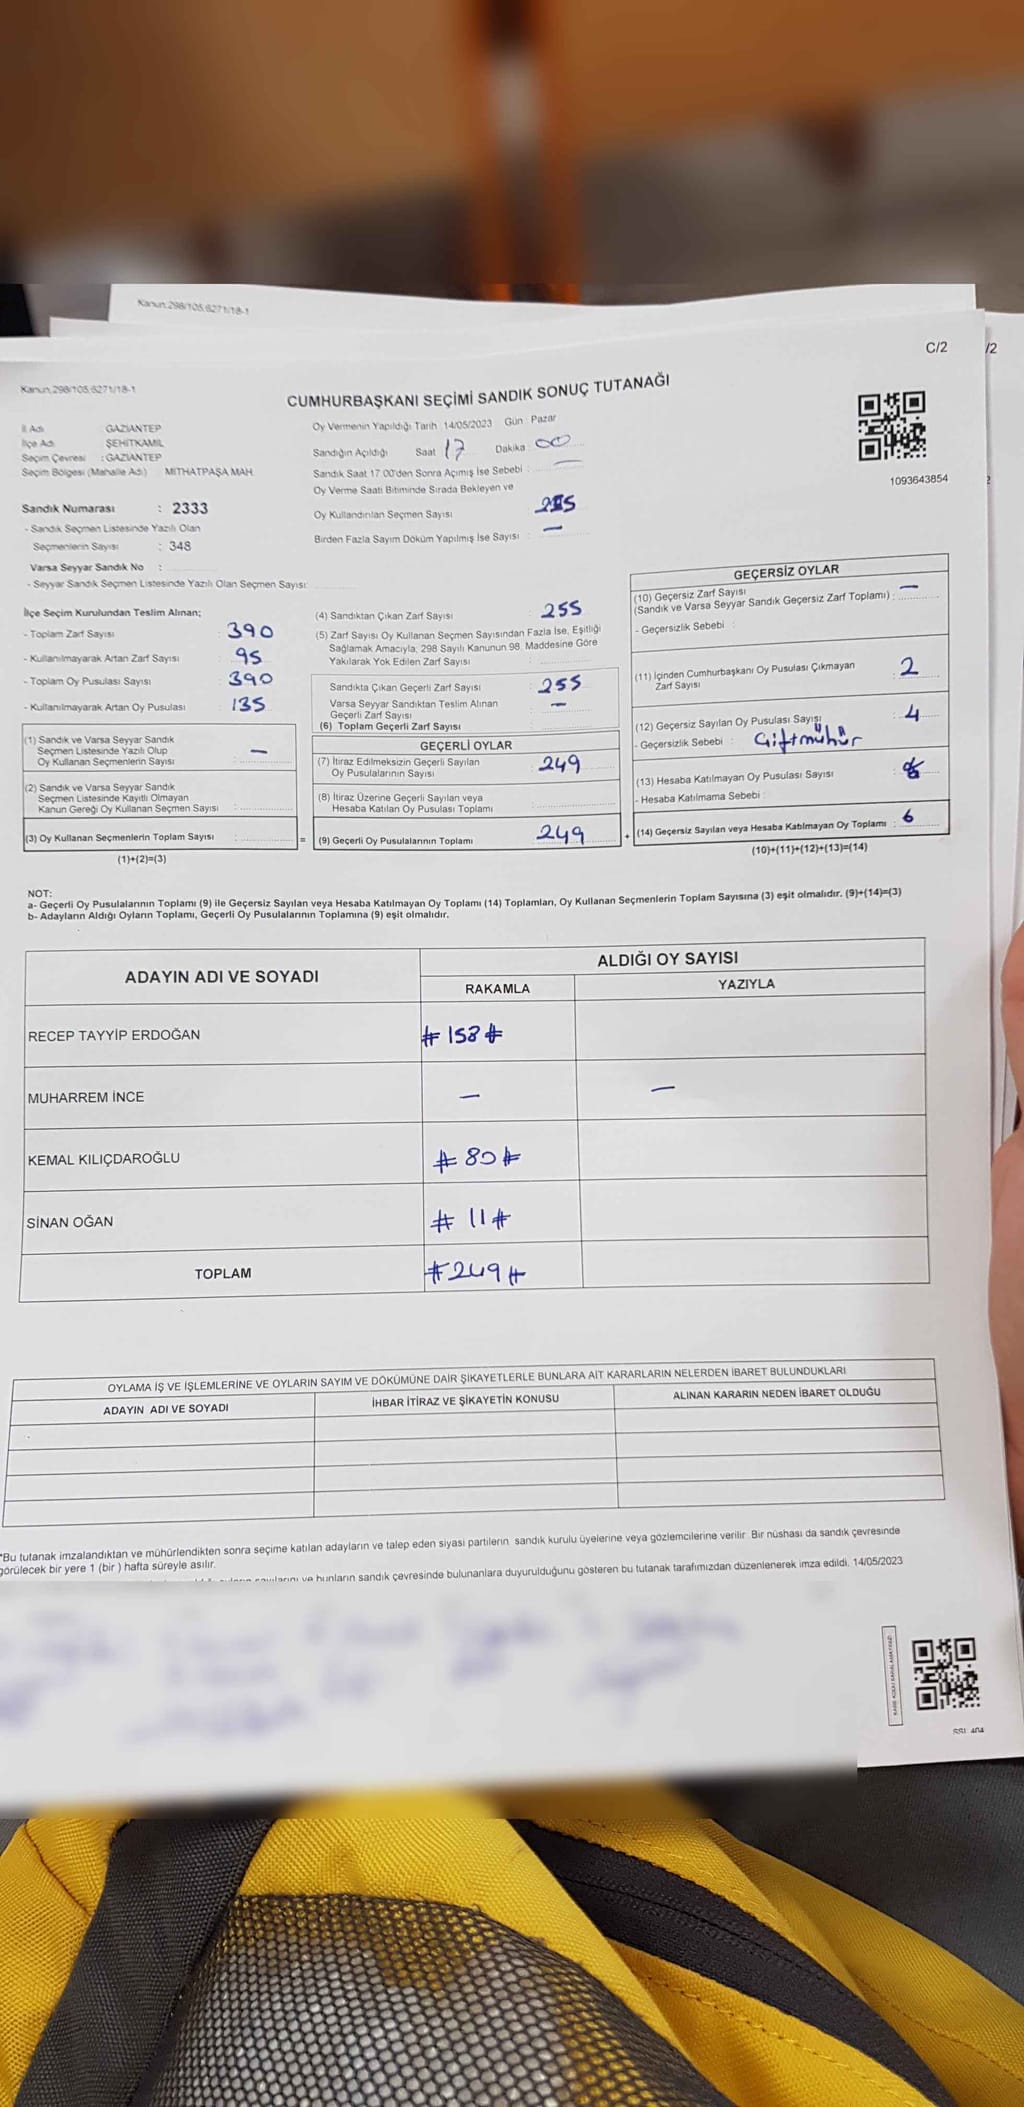 Kanun:298/105,6271/18-1
C/2
/2
Kanun:298/105,6271/18-1
CUMHURBAŞKANI SEÇİMİ SANDIK SONUÇ TUTANAĞI
İl Adı : GAZİANTEP
İlçe Adı : ŞEHİTKAMİL
Seçim Çevresi : GAZİANTEP
Seçim Bölgesi (Mahalle Adı) MİTHATPAŞA MAH.
Oy Vermenin Yapıldığı Tarih : 14/05/2023 Gün : Pazar
Sandığın Açıldığı Saat 17 Dakika : 00
Sandık Saat 17:00'den Sonra Açımış İse Sebebi : —
Oy Verme Saati Bitiminde Sırada Bekleyen ve
Oy Kullandırılan Seçmen Sayısı
Birden Fazla Sayım Döküm Yapılmış İse Sayısı : —
1093643854
Sandık Numarası : 2333
- Sandık Seçmen Listesinde Yazılı Olan
Seçmenlerin Sayısı : 348
Varsa Seyyar Sandık No :
- Seyyar Sandık Seçmen Listesinde Yazılı Olan Seçmen Sayısı:
İlçe Seçim Kurulundan Teslim Alınan;
- Toplam Zarf Sayısı : 390
- Kullanılmayarak Artan Zarf Sayısı : 95
- Toplam Oy Pusulası Sayısı : 390
- Kullanılmayarak Artan Oy Pusulası : 135
(1) Sandık ve Varsa Seyyar Sandık
Seçmen Listesinde Yazılı Olup
Oy Kullanan Seçmenlerin Sayısı : —
(2) Sandık ve Varsa Seyyar Sandık
Seçmen Listesinde Kayıtlı Olmayan
Kanun Gereği Oy Kullanan Seçmen Sayısı :
(3) Oy Kullanan Seçmenlerin Toplam Sayısı : =
(1)+(2)=(3)
(4) Sandıktan Çıkan Zarf Sayısı : 255
(5) Zarf Sayısı Oy Kullanan Seçmen Sayısından Fazla İse, Eşitliği
Sağlamak Amacıyla; 298 Sayılı Kanunun 98. Maddesine Göre
Yakılarak Yok Edilen Zarf Sayısı :
Sandıkta Çıkan Geçerli Zarf Sayısı : 255
Varsa Seyyar Sandıktan Teslim Alınan
Geçerli Zarf Sayısı : —
(6) Toplam Geçerli Zarf Sayısı
GEÇERLİ OYLAR
(7) İtiraz Edilmeksizin Geçerli Sayılan
Oy Pusulalarının Sayısı : 249
(8) İtiraz Üzerine Geçerli Sayılan veya
Hesaba Katılan Oy Pusulası Toplamı :
(9) Geçerli Oy Pusulalarının Toplamı : 249 +
GEÇERSİZ OYLAR
(10) Geçersiz Zarf Sayısı
(Sandık ve Varsa Seyyar Sandık Geçersiz Zarf Toplamı) : —
- Geçersizlik Sebebi :
(11) İçinden Cumhurbaşkanı Oy Pusulası Çıkmayan
Zarf Sayısı : 2
(12) Geçersiz Sayılan Oy Pusulası Sayısı : 4
- Geçersizlik Sebebi : Çiftmühür
(13) Hesaba Katılmayan Oy Pusulası Sayısı :
- Hesaba Katılmama Sebebi :
(14) Geçersiz Sayılan veya Hesaba Katılmayan Oy Toplamı : 6
(10)+(11)+(12)+(13)=(14)
NOT:
a- Geçerli Oy Pusulalarının Toplamı (9) ile Geçersiz Sayılan veya Hesaba Katılmayan Oy Toplamı (14) Toplamları, Oy Kullanan Seçmenlerin Toplam Sayısına (3) eşit olmalıdır. (9)+(14)=(3)
b- Adayların Aldığı Oyların Toplamı, Geçerli Oy Pusulalarının Toplamına (9) eşit olmalıdır.
ADAYIN ADI VE SOYADI
ALDIĞI OY SAYISI
RAKAMLA
YAZIYLA
RECEP TAYYİP ERDOĞAN # 158 #
MUHARREM İNCE — —
KEMAL KILIÇDAROĞLU # 80 #
SİNAN OĞAN # 11 #
TOPLAM # 249 #
OYLAMA İŞ VE İŞLEMLERİNE VE OYLARIN SAYIM VE DÖKÜMÜNE DAİR ŞİKAYETLERLE BUNLARA AİT KARARLARIN NELERDEN İBARET BULUNDUKLARI
ADAYIN ADI VE SOYADI
İHBAR İTİRAZ VE ŞİKAYETİN KONUSU
ALINAN KARARIN NEDEN İBARET OLDUĞU
*Bu tutanak imzalandıktan ve mühürlendikten sonra seçime katılan adayların ve talep eden siyasi partilerin sandık kurulu üyelerine veya gözlemcilerine verilir. Bir nüshası da sandık çevresinde
görülecek bir yere 1 (bir ) hafta süreyle asılır.
ve bunların sandık çevresinde bulunanlara duyurulduğunu gösteren bu tutanak tarafımızdan düzenlenerek imza edildi. 14/05/2023